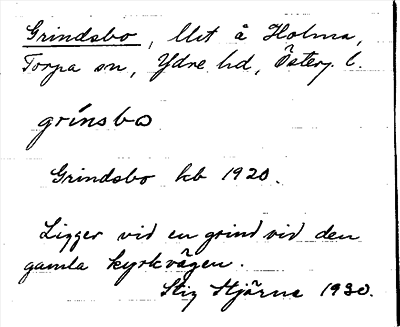 Grindsbo, llet å Holma,
Torpa sn, Ydre hd, Österg. l.
grinsbo
Grindsbo kb 1920.
Ligger vid en grind vid den
gamla kyrkvägen.
Stig Hjärne 1930.